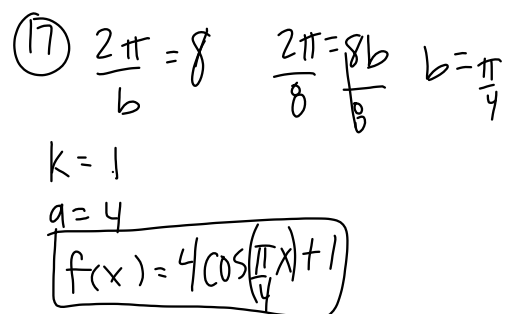 17 2π/b = 8 2π/8 = 8b/8 b = π/4
k = 1
a = 4
f(x) = 4cos(π/4 x) + 1